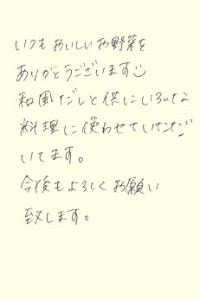 いつもおいしいお野菜を
ありがとうございます☺
和風だしと供にいろんな
料理に使わせていただ
いてます。
今後もよろしくお願い
致します。